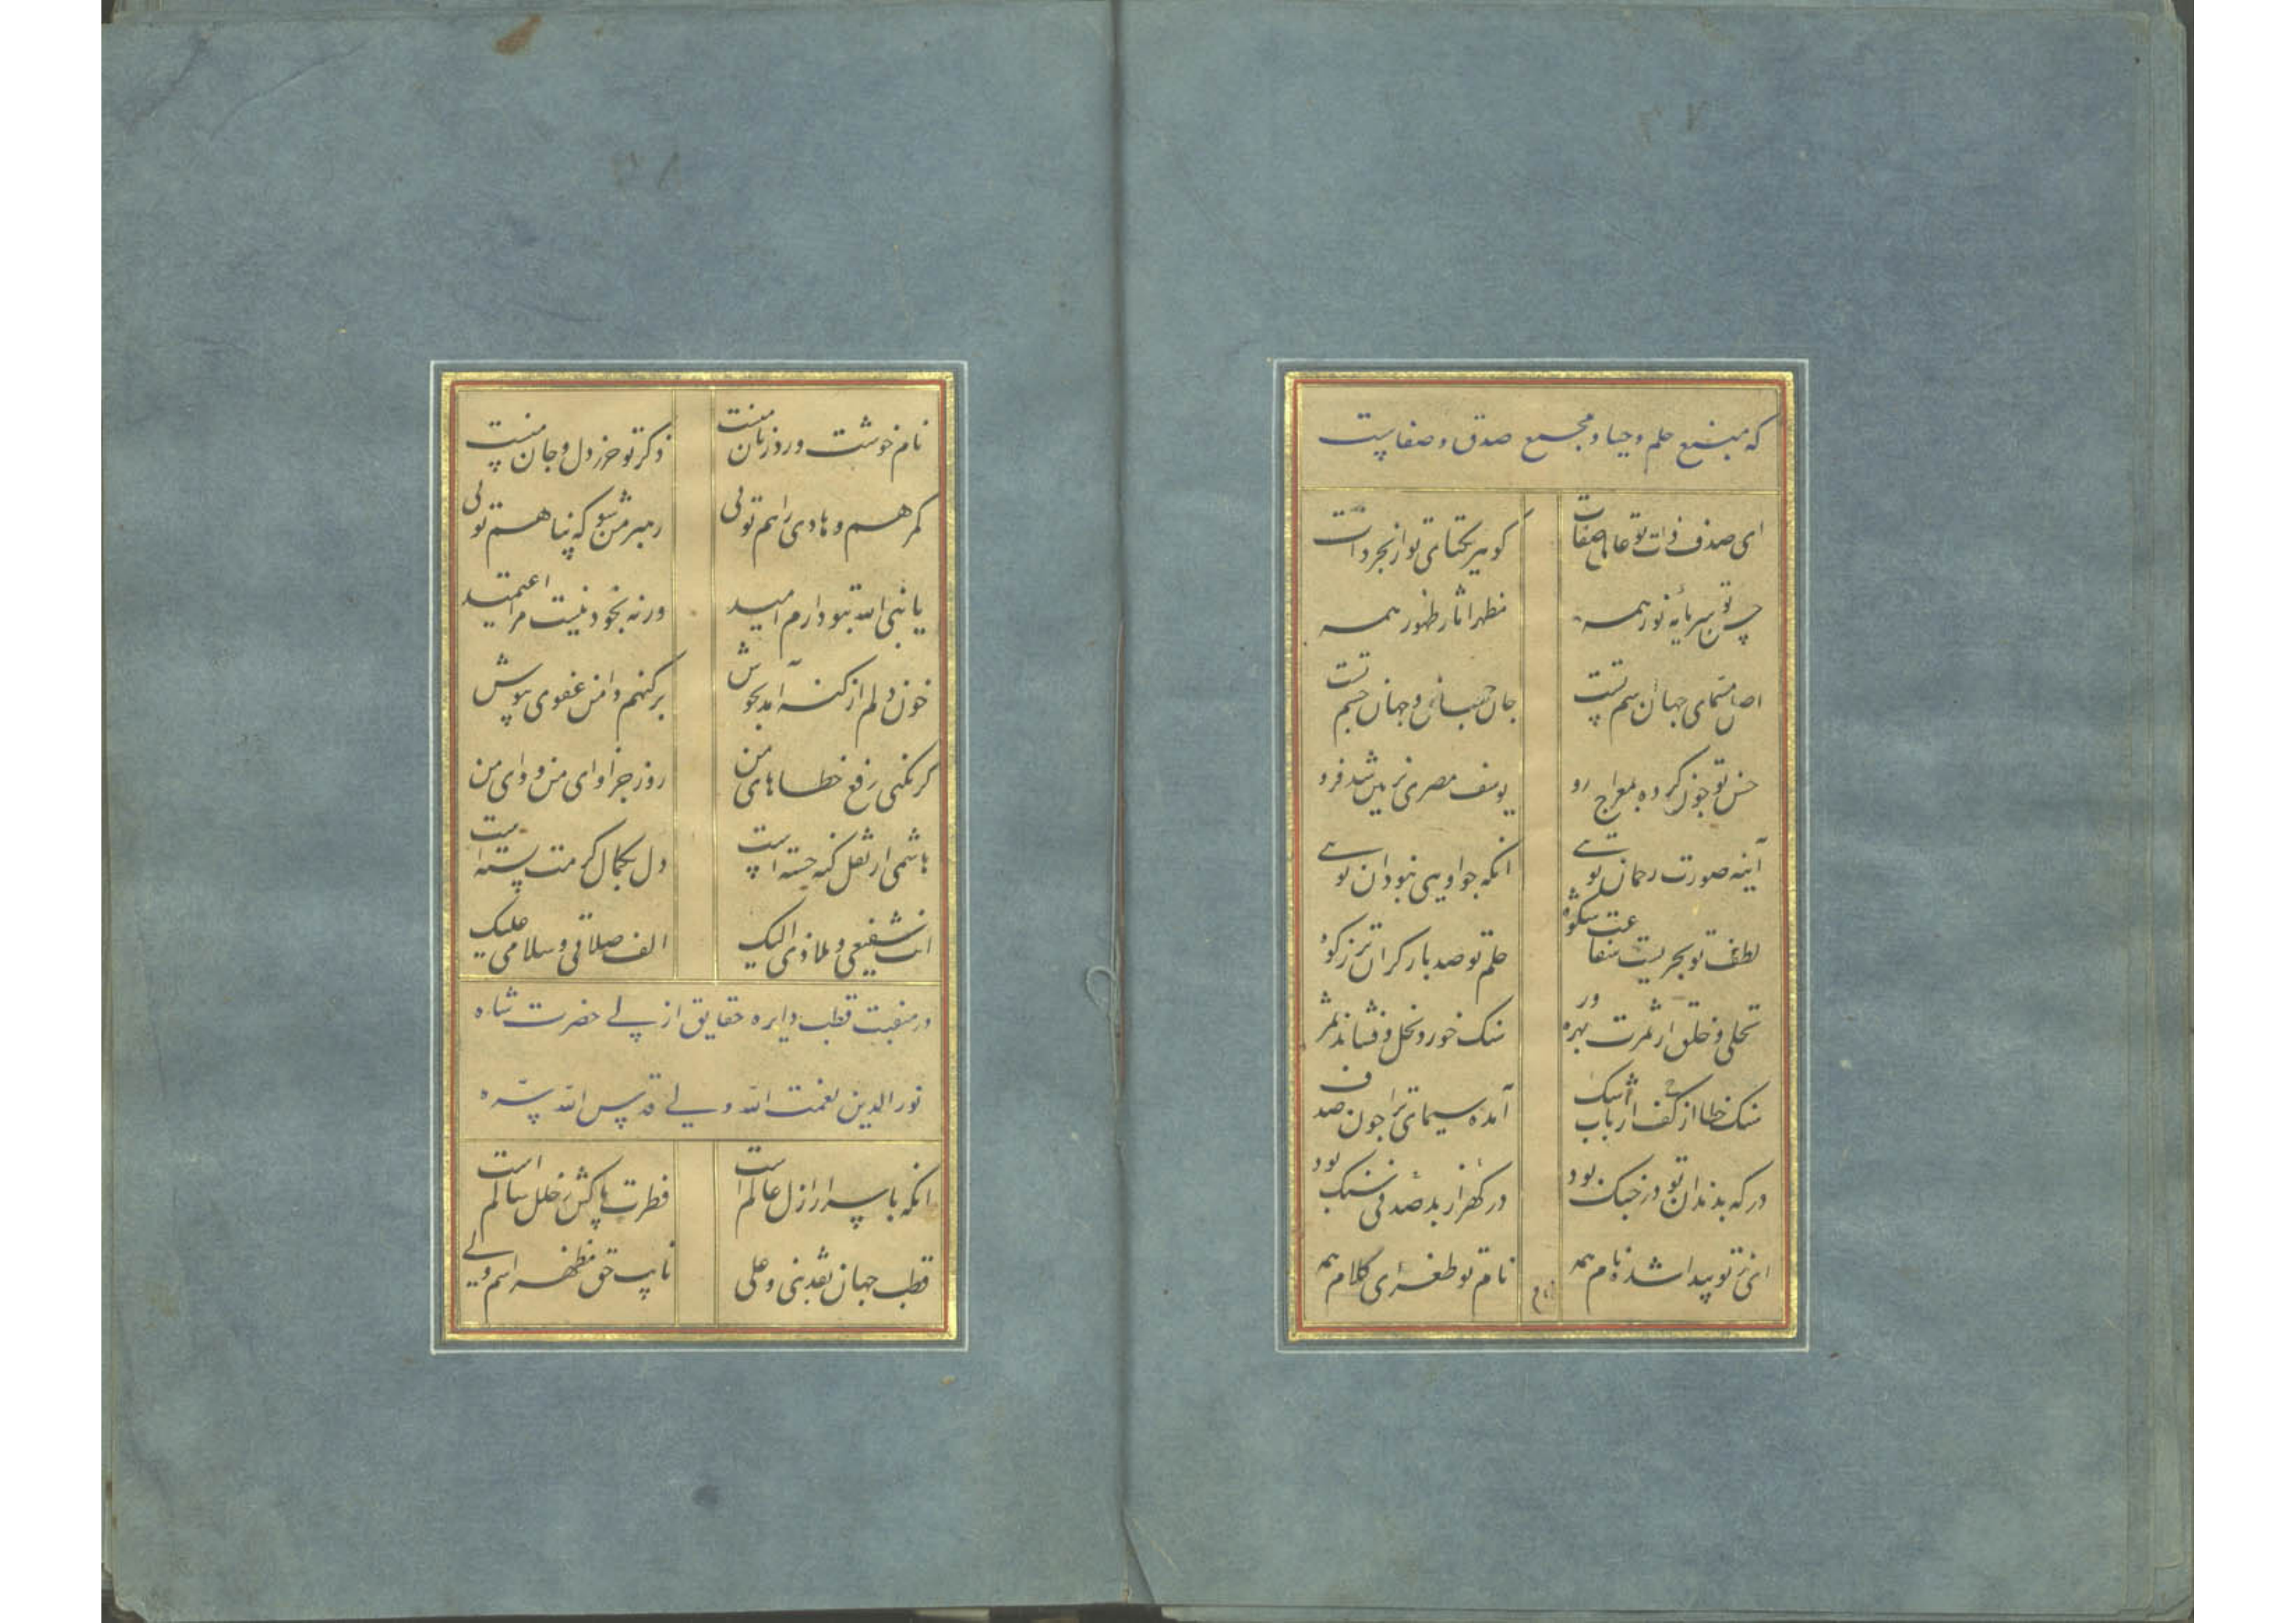 که منبع حلم و حیا و مجمع صدق و صفاست
ای صدف ذات تو عالی صفات گوهر یکتای تو از بحر ذات
حسن تو سرمایه نور همه مظهر آثار ظهور همه
اصل مسمای جهان اسم تست جان جهانی و جهان جسم تست
حسن تو چون کرده بمعراج رو یوسف مصری بزمین شد فرو
آینه صورت رحمان تویی آنکه جز او یی نبود آن تویی
لطف تو بحریست شفاعت شکوه حلم تو صد بار گران تر ز کوه
نخلی و خلق از ثمرت بهره ور سنگ خورد نخل و فشاند ثمر
سنگ خطا از کف ارباب شک آمده سیمای ترا چون صدف
در که بدندان تو در جنگ بود در گهر از بد صدفی سنگ بود
ای ز تو پیدا شده نام همه نام تو طغرای کلام همه
نام خوشت ورد زبان منست ذکر تو حرز دل و جان منست
گمرهم و هادی راهم تویی رهبر من شو که پناهم تویی
یا نبی الله بتو دارم امید ورنه بخود نیست مرا اعتمید
خون دلم از گنه آمد بجوش بر گنهم دامن عفوی بپوش
گر نکنی رفع خطاهای من روز جزا وای من و وای من
هاشمی ار ثقل گنه خسته است دل بکمال کرمت بسته است
انت شفیعی و ملاذی الیک الف صلاتی و سلامی علیک
در منقبت قطب دایره حقایق ازلی حضرت شاه
نور الدین نعمت الله ولی قدس الله سره
آنکه باسرار ازل عالم است فطرت پاکش ز خلل سالم است
قطب جهان نقد نبی و علی نایب حق مظهر اسم ولی